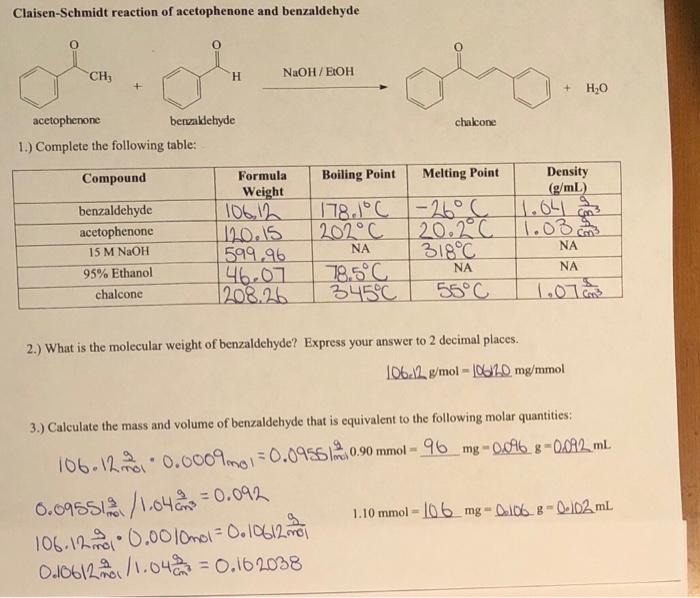 Claisen-Schmidt reaction of acetophenone and benzaldehyde
O O O
CH₃ + H NaOH / EtOH + H₂O
acetophenone benzaldehyde chalcone
1.) Complete the following table:
Compound Formula Weight Boiling Point Melting Point Density (g/mL)
benzaldehyde 106.12 178.1°C -26°C 1.041 g/cm³
acetophenone 120.15 202°C 20.2°C 1.03 g/cm³
15 M NaOH 599.96 NA 318°C NA
95% Ethanol 46.07 78.5°C NA NA
chalcone 208.26 345°C 55°C 1.07 g/cm³
2.) What is the molecular weight of benzaldehyde? Express your answer to 2 decimal places.
106.12 g/mol = 106120 mg/mmol
3.) Calculate the mass and volume of benzaldehyde that is equivalent to the following molar quantities:
106.12 g/mol · 0.0009 mol = 0.09551 g/mol 0.90 mmol = 96 mg = 0.096 g = 0.092 mL
0.09551 g/mol / 1.04 g/cm³ = 0.092
1.10 mmol = 106 mg = 0.106 g = 0.102 mL
106.12 g/mol · 0.0010 mol = 0.10612 g/mol
0.10612 g/mol / 1.04 g/cm³ = 0.102038